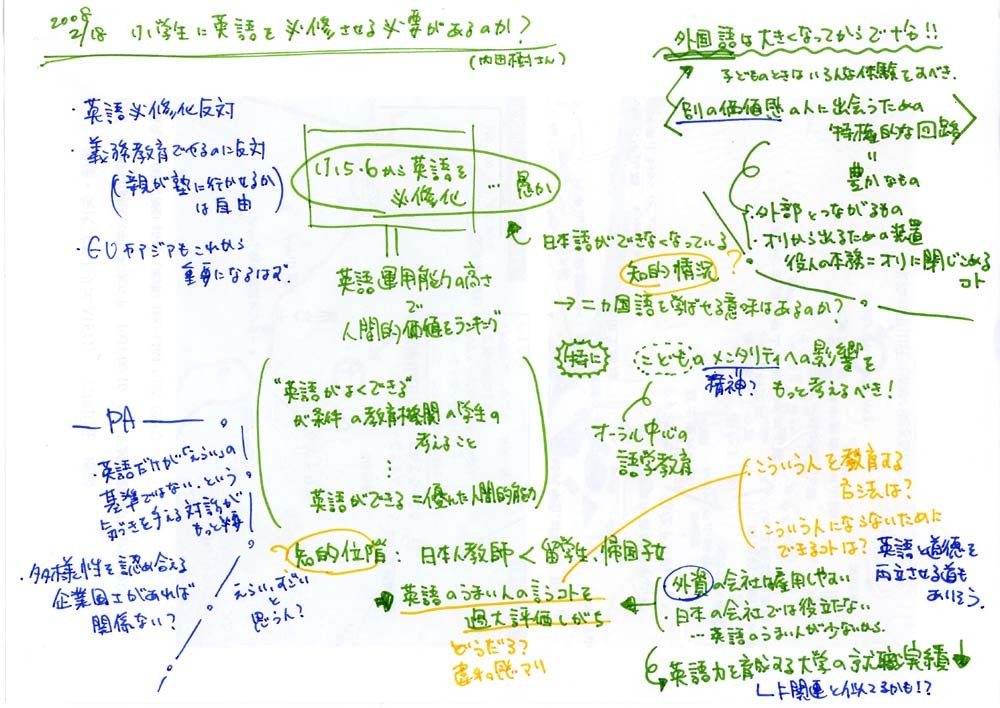 2008 2/18 小学生に英語を必修させる必要があるのか?
(内田樹さん)
・英語必修化反対
・義務教育でやるのに反対
(親が塾に行かせるかは自由)
・EUやアジアもこれから
重要になるはず。
小5・6から英語を
必修化
… 愚か
英語運用能力の高さ
で
人間的価値をランキング
"英語がよくできる"
が条件の教育機関の学生の
考えること
⋮
英語ができる=優れた人間的能力
外国語は大きくなってからで十分!!
子どものときはいろんな体験をすべき.
別の価値感の人に出会うための
特権的な回路
〃
豊かなもの
・外部とつながるもの
・オリから出るための装置
役人の本務=オリに閉じこめる
コト
日本語ができなくなっている
知的情況?
→二ヵ国語を学ばせる意味はあるのか?
特に
こどものメンタリティへの影響を
精神?
もっと考えるべき!
オーラル中心の
語学教育
PA
・英語だけが「えらい」の
基準ではない、という
気づきを与える対話が
もっと必要
・多様性を認め合える
企業同士があれば
関係ない?
えらい、すごい
と
思う人?
知的位階:日本人教師<留学生、帰国子女
英語のうまい人の言うコトを
過大評価しがち
どうだろ?
違和感アリ
・こういう人を教育する
方法は?
・こういう人にならないために
できるコトは?
英語と道徳を
両立させる道も
ありそう。
・外資の会社は雇用しない
・日本の会社では役立たない
…英語のうまい人が少ないから.
英語力を育成する大学の就職実績
└ト関連と似てるかも!?